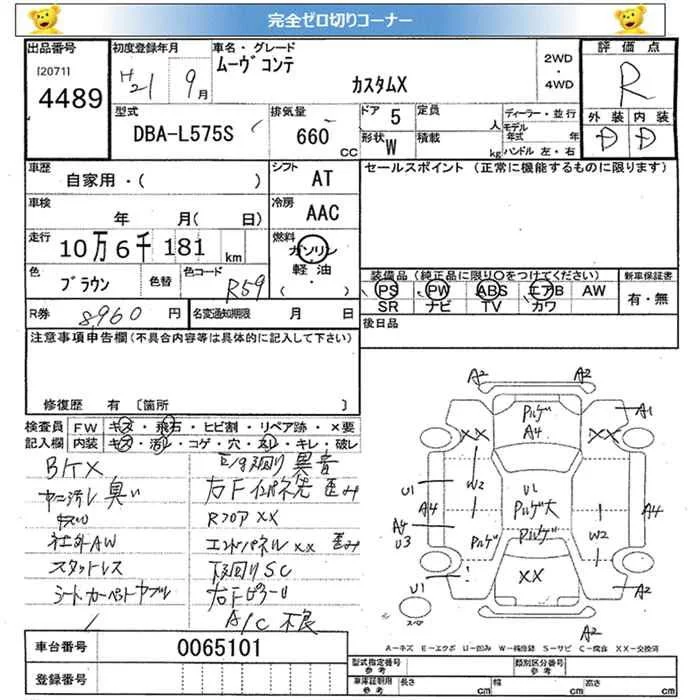 完全ゼロ切りコーナー
出品番号
[2071]
4489
初度登録年月
H21 9月
車名・グレード
ムーヴコンテ
カスタムX
2WD
・
4WD
評価点
R
外装 内装
D D
型式
DBA-L575S
排気量
660
CC
ドア 5
形状 W
定員
人
積載
kg
ディーラー・並行
モデル
年式 年
ハンドル 左・右
車歴
自家用・( )
シフト
AT
セールスポイント (正常に機能するものに限ります)
車検
年 月( 日)
冷房
AAC
走行
10万6千181 km
燃料
ガソリン
軽油
( ・ )
色
ブラウン
色替
色コード
R59
装備品(純正品に限り○をつけてください)
新車保証書
PS PW ABS エアB AW
SR ナビ TV カワ
有・無
R券
8,960 円
名変通知期限 月 日
後日品
注意事項申告欄(不具合内容等は具体的に記入して下さい)
修復歴 有 [箇所 ]
検査員
記入欄
FW キズ・飛石・ヒビ割・リペア跡・×要
内装 キズ・汚レ・コゲ・穴・スレ・キレ・破レ
BTX
ヤニ汚れ 臭い
社外AW
スタッドレス
シートカーペトヤブレ
E/g廻り異音
右Fインパネ先 歪み
RフロアXX
エンドパネルXX 歪み
下廻りSC
右FピラーU
A/C不良
A2 A2
A1
アルゲ
A4
XX XX
U1
W2
A4
U1
アルゲ大
A4
A4
U3
アルゲ アルゲ
W2
U1
!
XX
A2
スペア
A2
A=キズ E=エクボ U=凹み W=補修跡 S=サビ C=腐食 XX=交換済
車台番号
0065101
登録番号
型式指定番号
参考
類別区分番号
参考
車庫証明用
参考
長さ cm
幅 cm
高さ cm